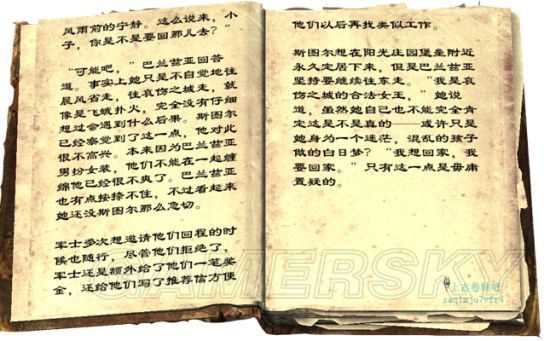 风雨前的宁静。这么说来，小
子，你是不是要回那儿去？”
“可能吧，”巴兰兹亚回答
道。事实上她只是不自觉地往
晨风省走，往哀伤之城走，就
像是飞蛾扑火，完全没有仔细
想过会遇到什么后果。斯图尔
已经察觉到了这一点，他对此
很不高兴。本来因为巴兰兹亚
男扮女装，他们不能在一起缠
绵他已经很不爽了。巴兰兹亚
也有点按捺不住，不过看起来
她还没斯图尔那么急切。
军士多次想邀请他们回程的时
候也随行，尽管他们拒绝了，
军士还是额外给了他们一笔奖
金，还给他们写了推荐信方便
他们以后再找类似工作。
斯图尔想在阳光庄园堡垒附近
永久定居下来，但是巴兰兹亚
坚持要继续往东走。“我是哀
伤之城的合法女王，”她说
道，虽然她自己也不能完全肯
定这是不是真的——或许只是
她身为一个迷茫，混乱的孩子
做的白日梦？“我想回家，我
要回家。”只有这一点是毋庸
置疑的。
GAMERSKY
上古卷轴吧
zaq1mju7vfr4